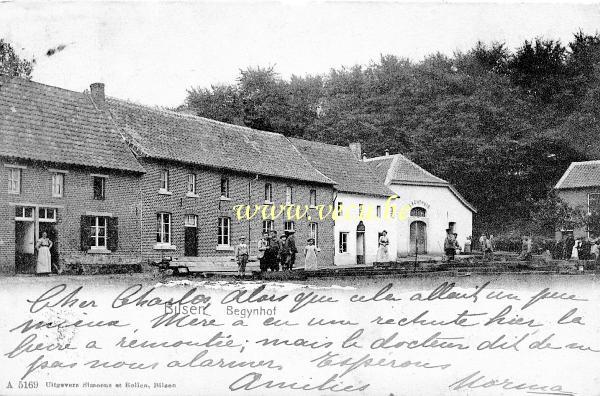 www.vecu.be
Cher Charles, Alors que cela allait un peu
Bilsen Begynhof
mieux Mère a eu une rechute hier, la
fièvre a remontée; mais le docteur dit de ne
pas nous alarmer. Espérons
A 5169 Uitgevers Simoens et Bollen, Bilsen
Amitiés Norma